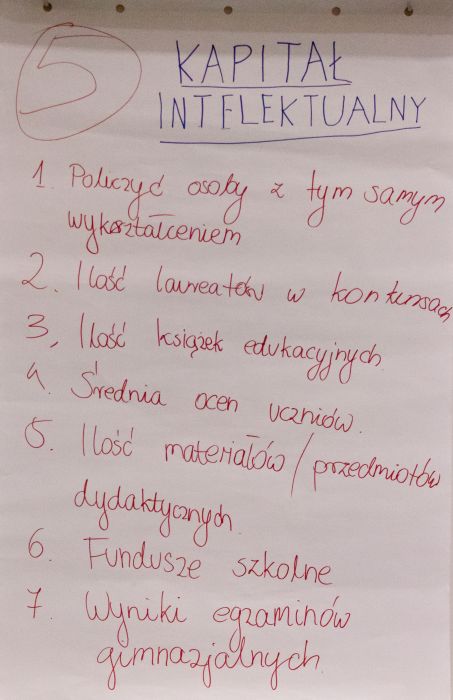 5
KAPITAŁ
INTELEKTUALNY
1. Policzyć osoby z tym samym
wykształceniem
2. Ilość laureatów w konkursach
3, Ilość książek edukacyjnych
4. Średnia ocen uczniów.
5. Ilość materiałów/przedmiotów
dydaktycznych.
6. Fundusze szkolne
7. Wyniki egzaminów
gimnazjalnych.